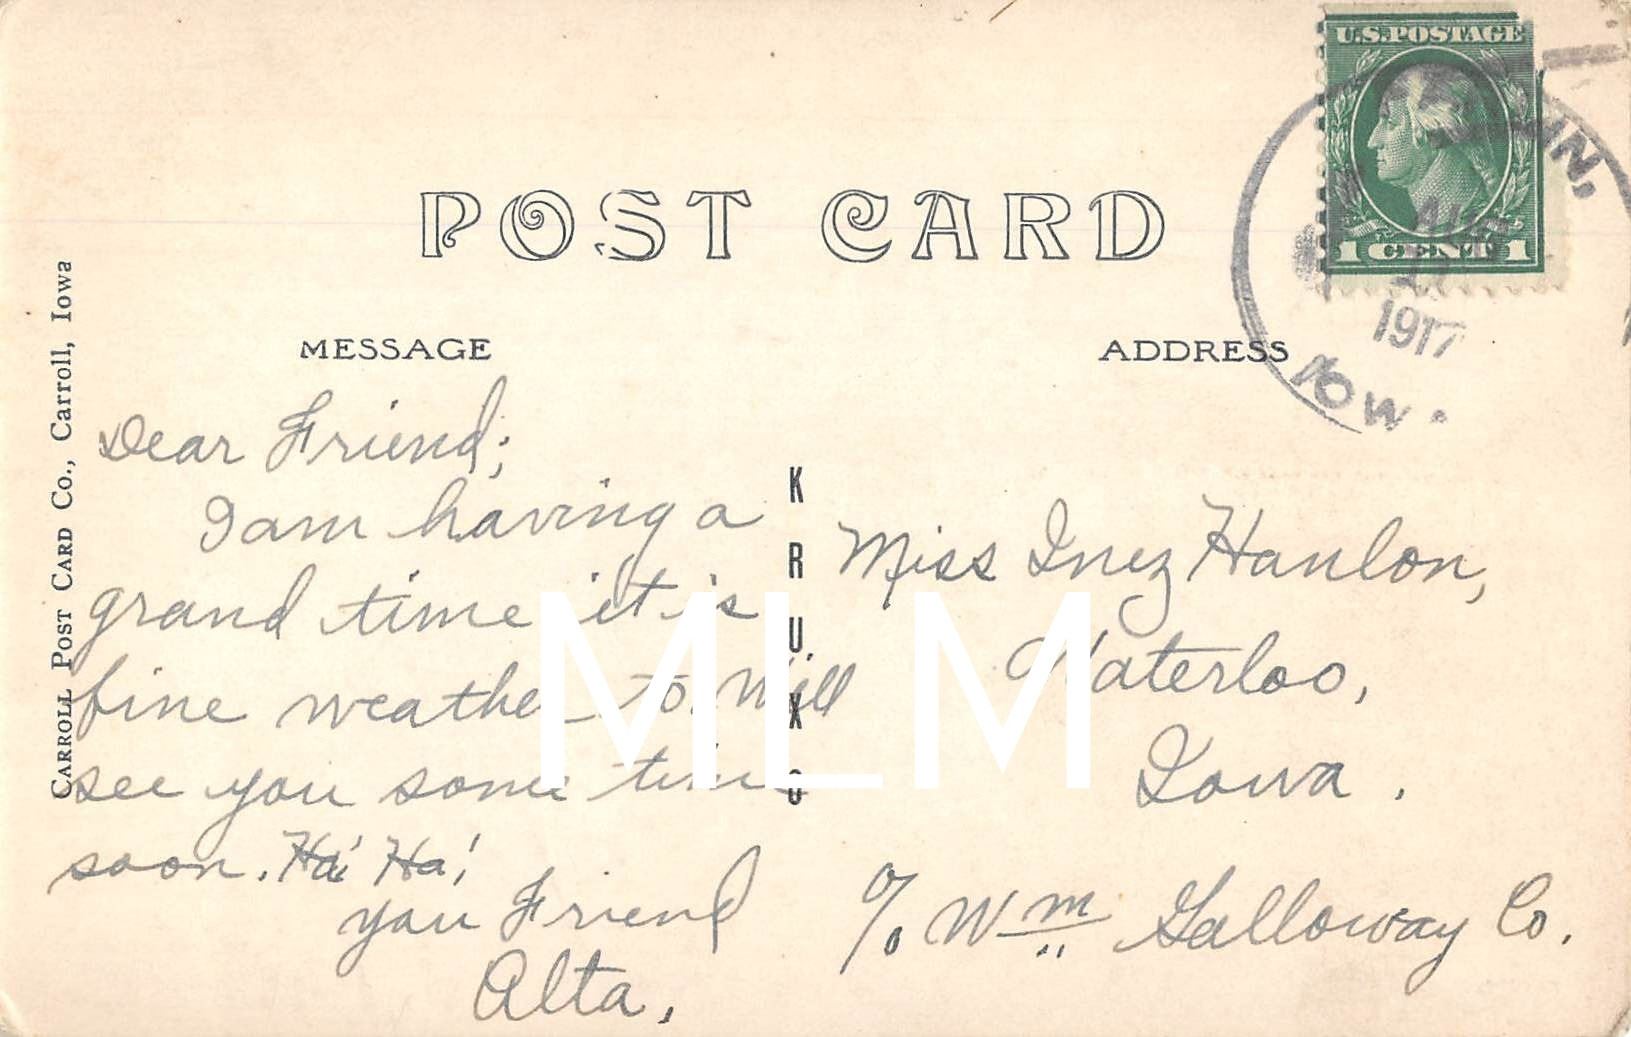 U.S. POSTAGE
1 CENT 1
AUG
1917
IOW.
POST CARD
MESSAGE
ADDRESS
CARROLL POST CARD CO., Carroll, Iowa
KRUXO
Dear Friend;
I am having a
grand time it is
fine weather to. Will
see you some time
soon. Ha! Ha!
you Friend
Alta,
Miss Inez Hanlon,
Waterloo,
Iowa.
c/o Wm Galloway Co.
MLM